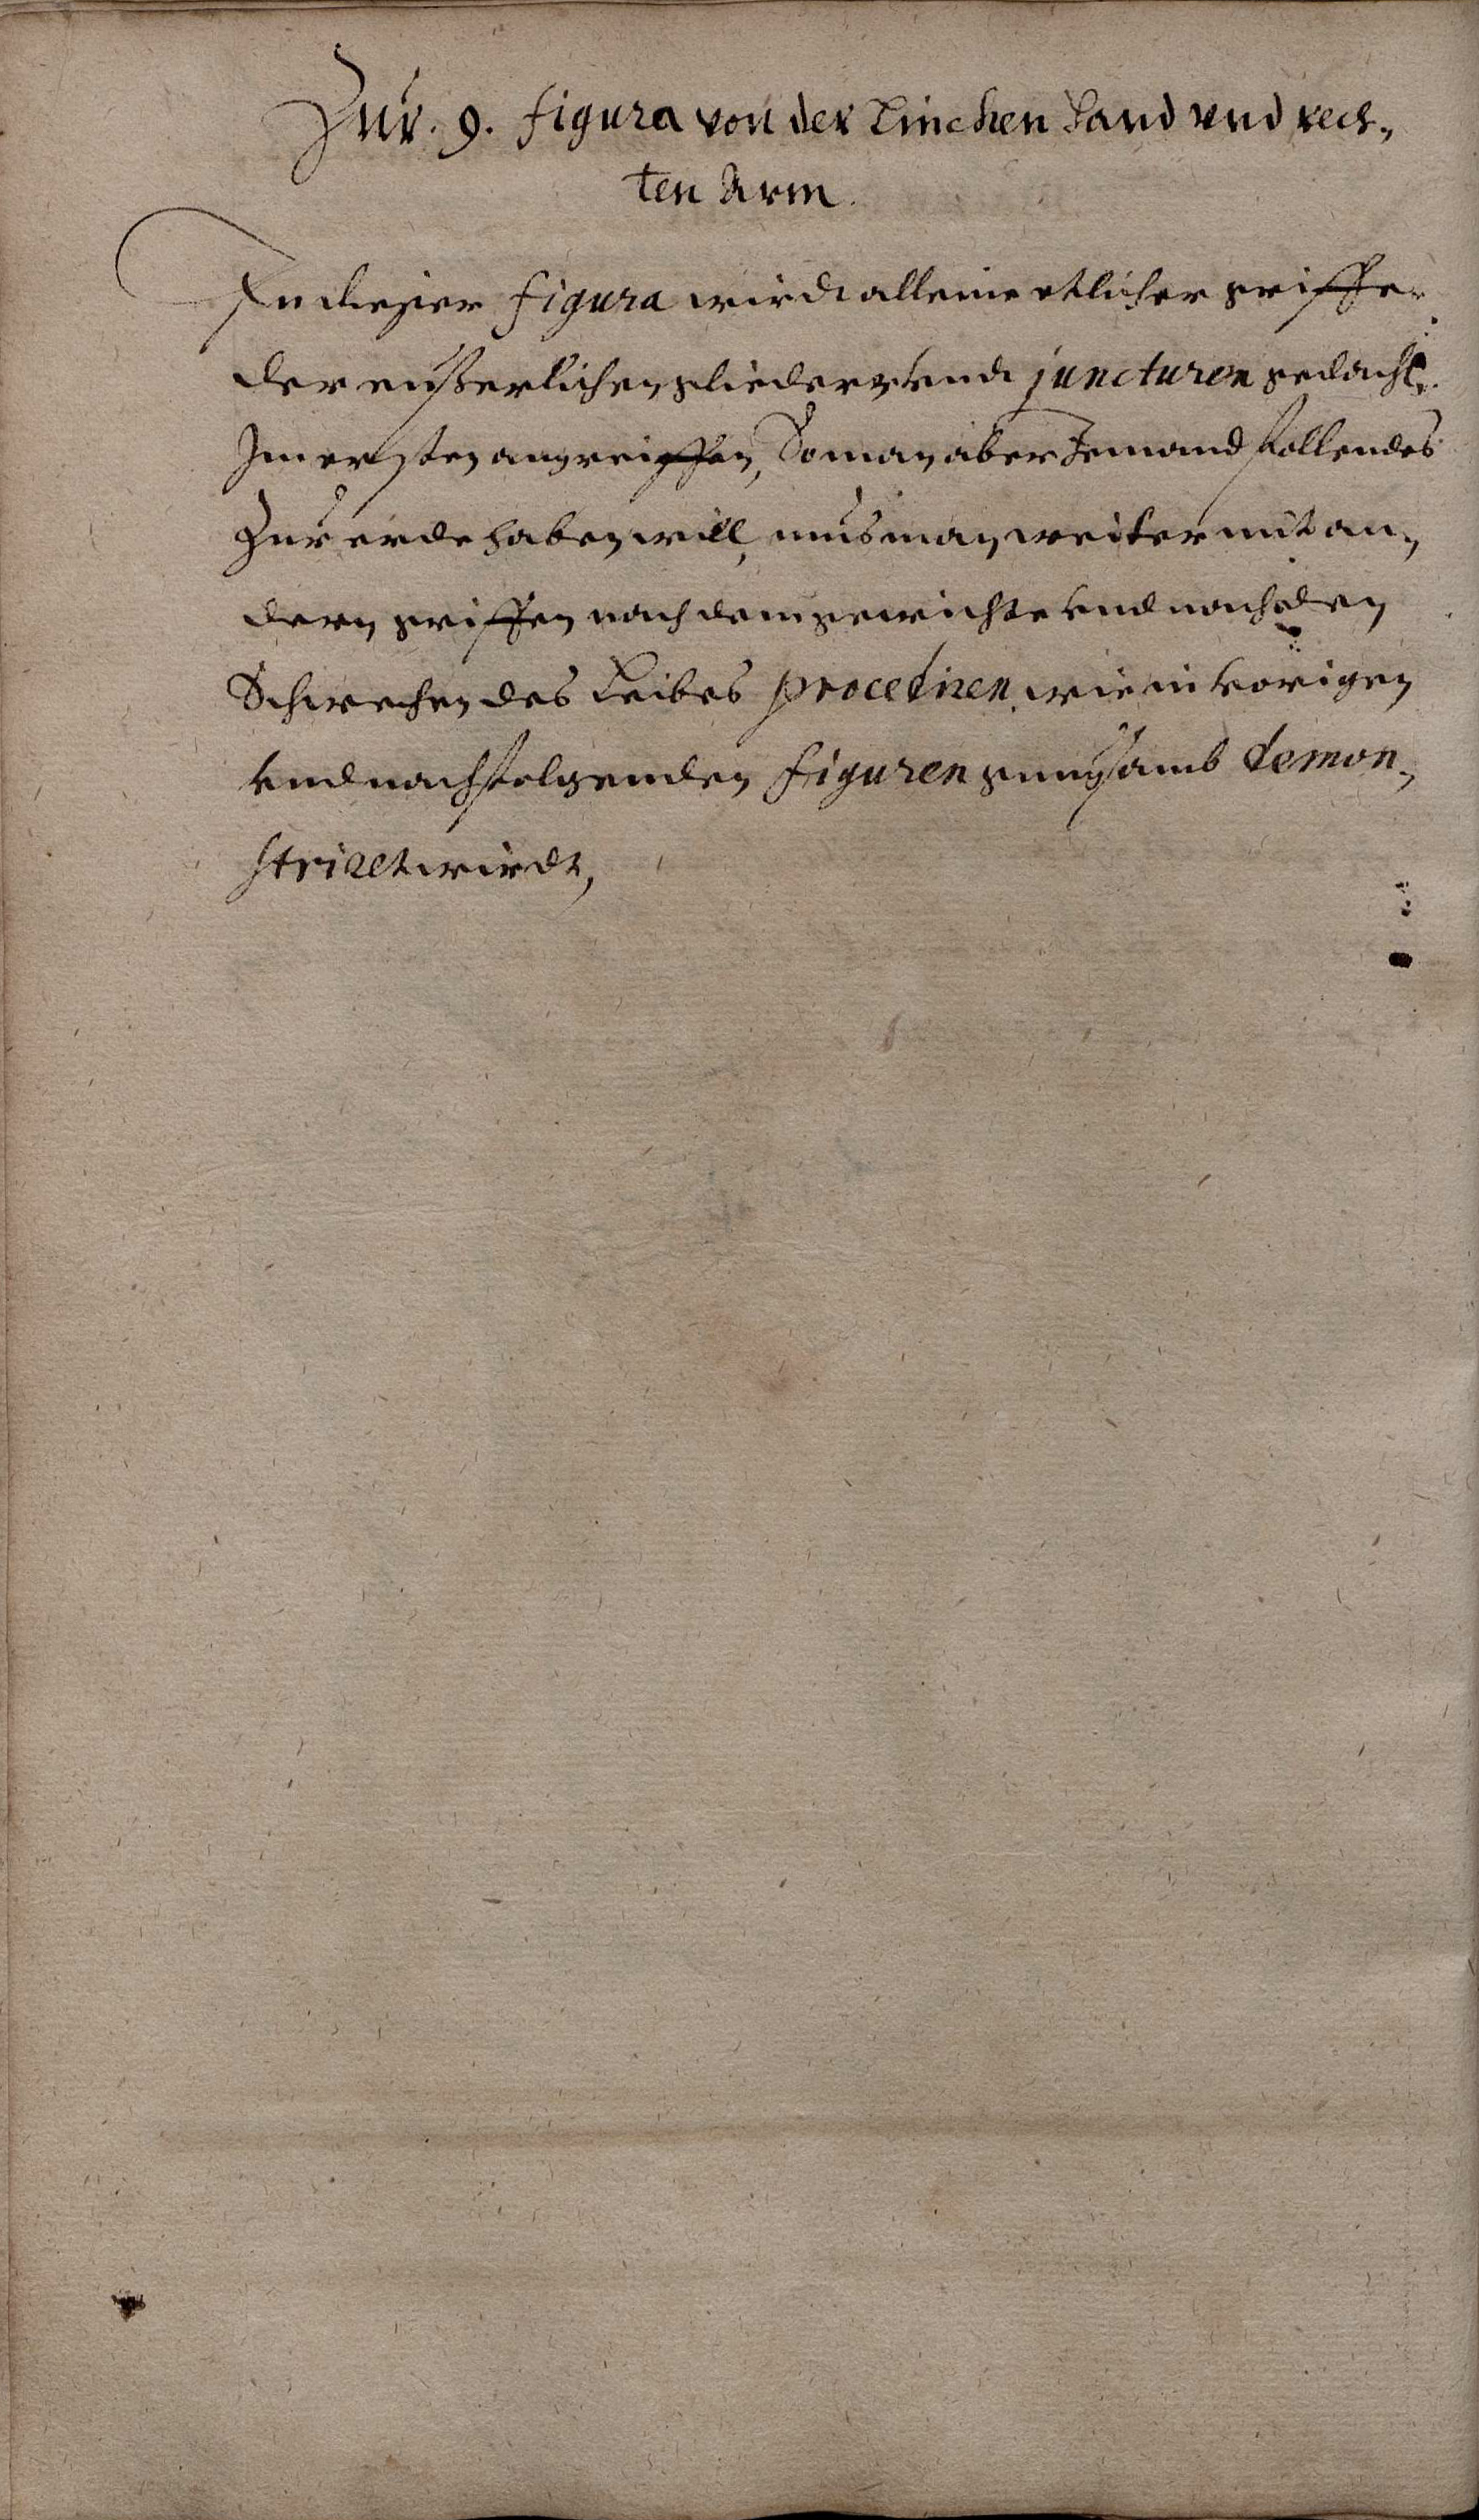 Zur. 9. figura von der Linchen Hand vnd rech„
ten Arm.
In dießer figura wirdt alleine etlicher griffe
der eußerlichen glieder vnndt juncturen gedacht.
Im ersten angreiffen, So man aber Jemand follendes
Zur erde haben will, mus man weiter mit an„
dern griffen nach dem gewichte vnd nach den
Schwechen des Leibes procediren, wie in vorigen
vnd nachfolgenden figuren gnugsamb demon„
striret wirdt,